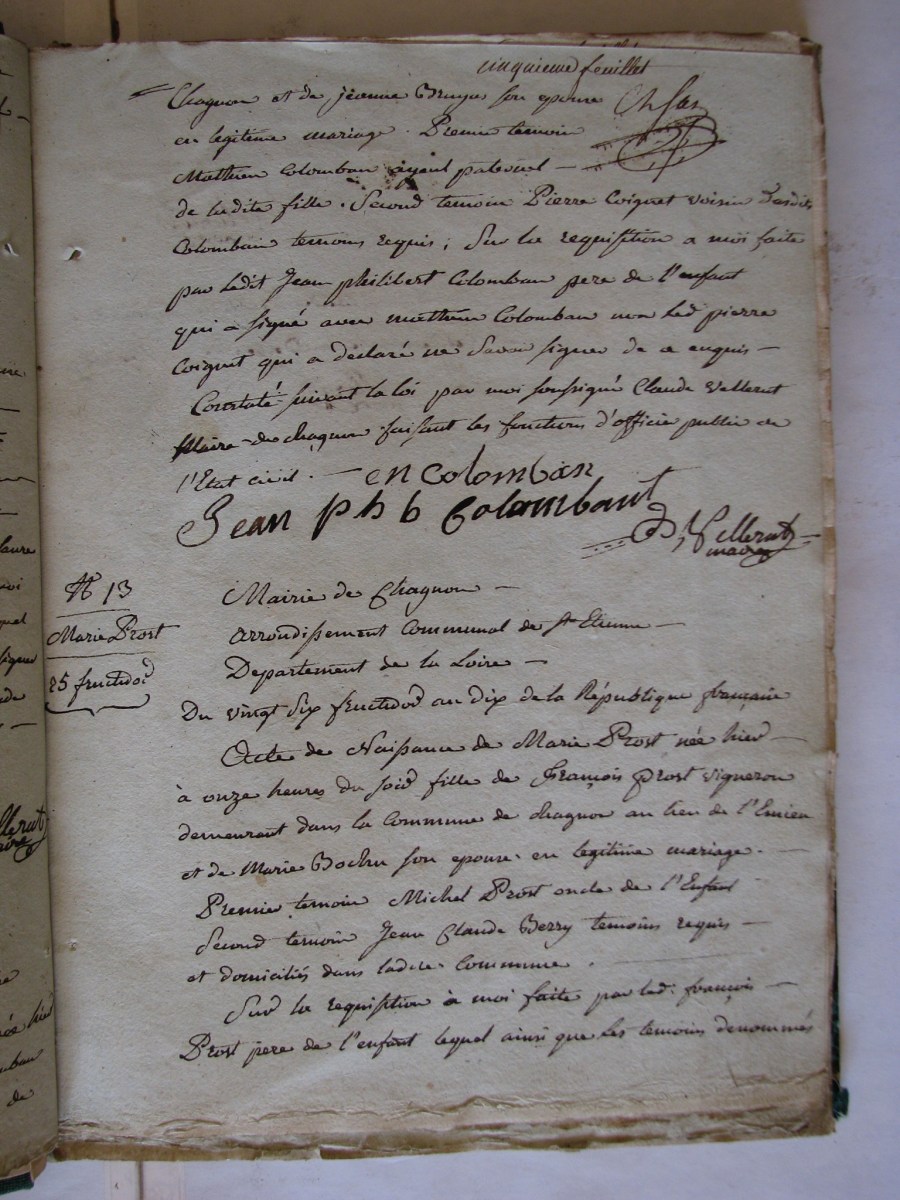 cinquieme feuillet
Chagnon et de jéanne Bruyas son epouse
en legitime mariage. Premier temoin
Matthieu Colomban ayeul paternel —
de ladite fille. Second temoin Pierre Coignet voisin desdits
Colomban temoins requis; Sur la requisition a moi faite
par ledit Jean philibert Colomban pere de l'enfant
qui a signé avec matthieu Colomban non led. pierre
Coignet qui a déclaré ne savoir signer de ce enquis —
Constaté suivant la loi par moi soussigné Claude Vellerut
Maire de chagnon faisant les fonctions d'officier public de
l'Etat civil. — en colomban
Jean phb Colombant
Vellerut
maire
N° 13
Marie Prost
25 fructidor
Mairie de Chagnon —
arrondissement Communal de St Etienne —
Departement de la Loire —
Du vingt six fructidor an dix de la République française
Acte de Naissance de Marie Prost née hier —
à onze heures du soir fille de François prost vigneron
demeurant dans la Commune de chagnon au lieu de
et de Marie Bochu son epouse en legitime mariage. —
Premier temoin Michel Prost oncle de l'Enfant
Second temoin Jean Claude Berry temoins requis —
et domiciliés dans ladite Commune. —
Sur la requisition à moi faite par led. françois —
Prost pere de l'enfant lequel ainsi que les temoins denommés